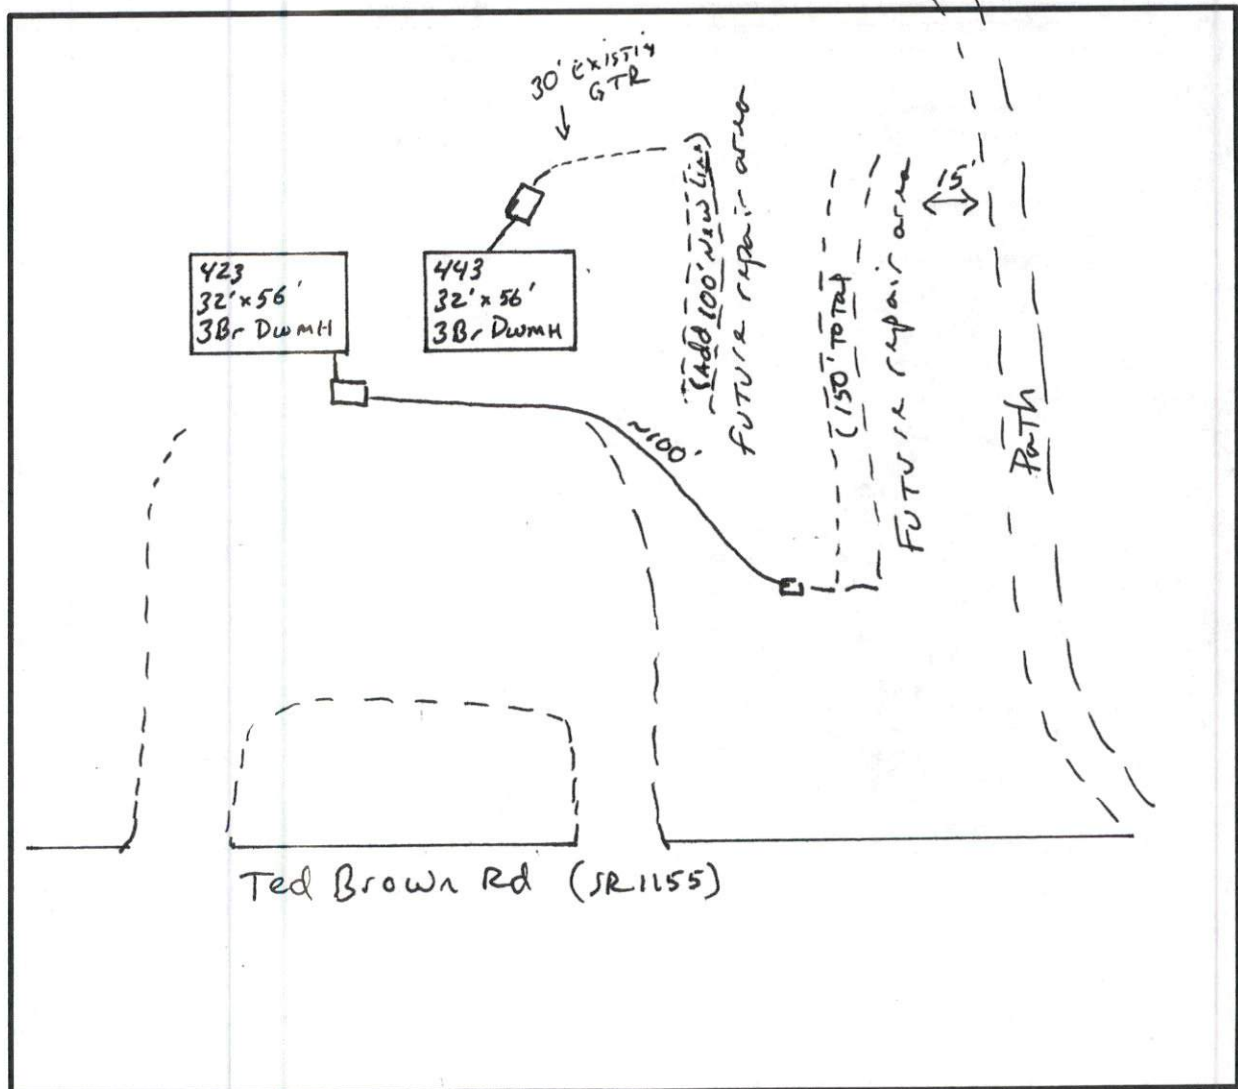 30' Existin
GTR
423
32' x 56'
3Br DWMH
443
32' x 56'
3Br DWMH
(Add 100' New Line)
Future repair area
(150' Total
Future repair area
15'
~100'
Path
Ted Brown Rd (SR1155)